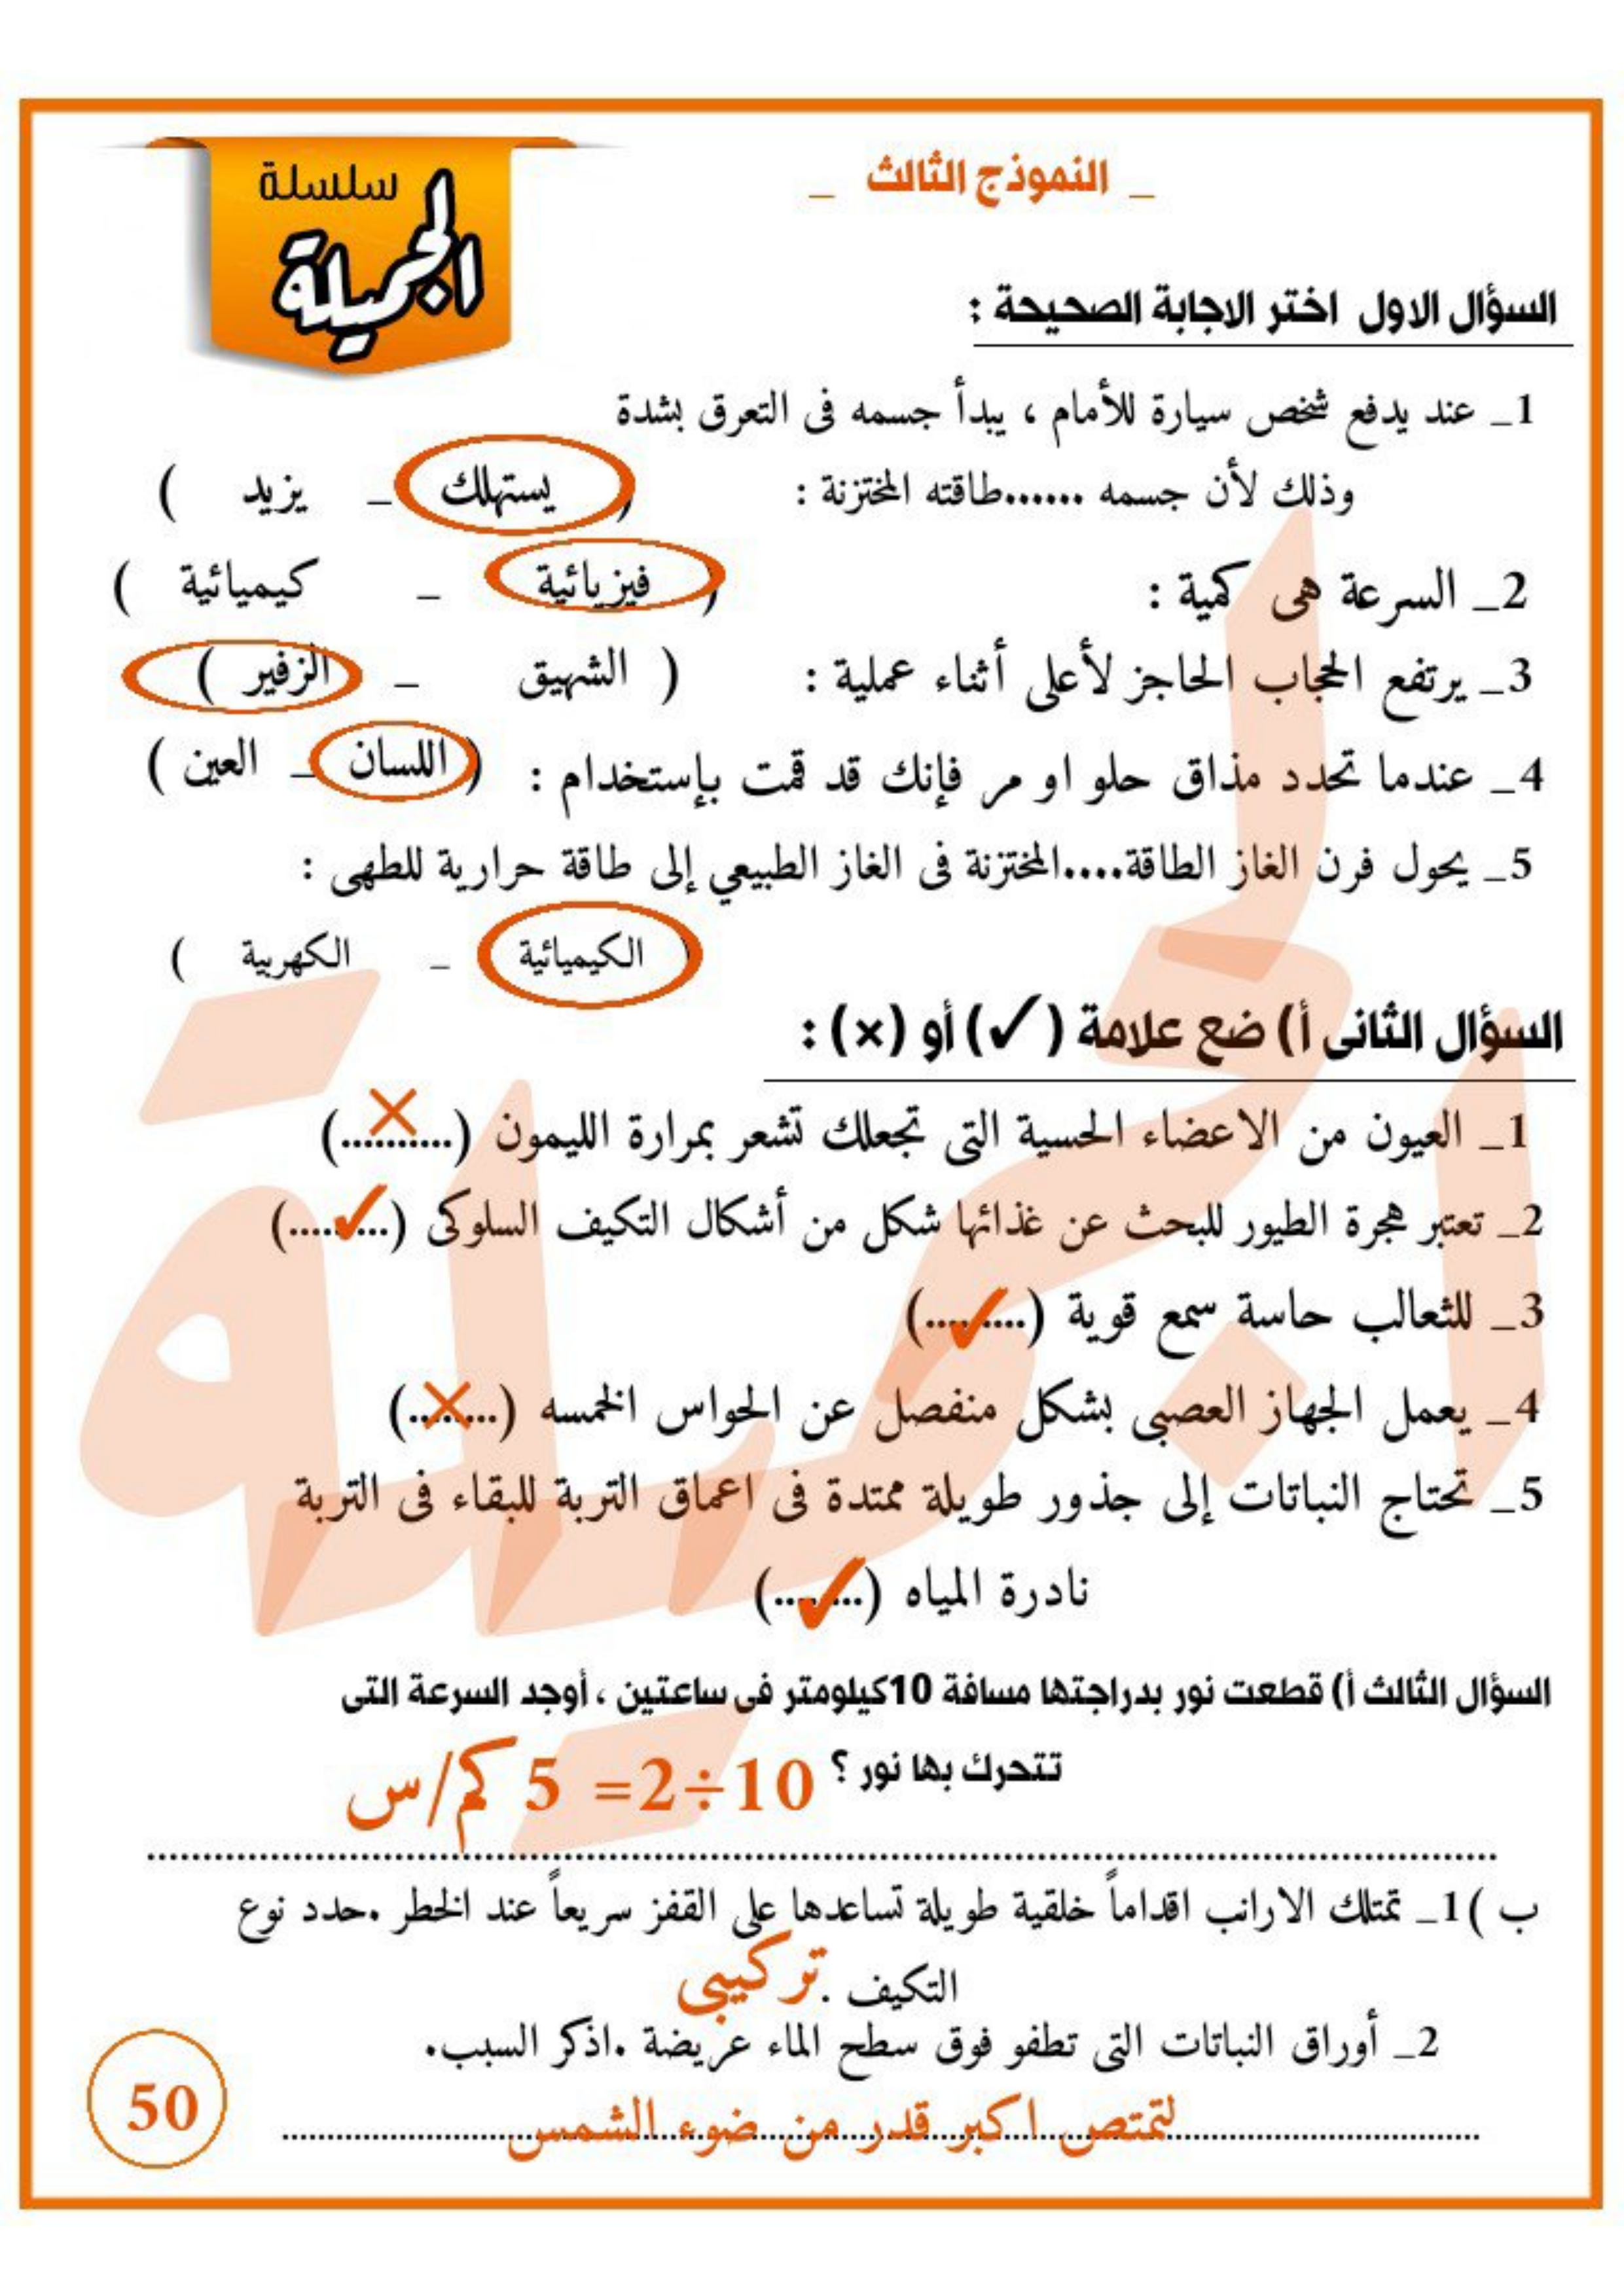 سلسلة
الجميلة
_ النموذج الثالث _
السؤال الاول اختر الاجابة الصحيحة :
1_ عند يدفع شخص سيارة للأمام ، يبدأ جسمه فى التعرق بشدة
وذلك لأن جسمه .......طاقته المختزنة : ( يستهلك _ يزيد )
2_ السرعة هى كمية : ( فيزيائية _ كيميائية )
3_ يرتفع الحجاب الحاجز لأعلى أثناء عملية : ( الشهيق _ الزفير )
4_ عندما تحدد مذاق حلو او مر فإنك قد قمت بإستخدام : ( اللسان _ العين )
5_ يحول فرن الغاز الطاقة....المختزنة فى الغاز الطبيعي إلى طاقة حرارية للطهى :
( الكيميائية _ الكهربية )
السؤال الثانى أ) ضع علامة (✓) أو (×) :
1_ العيون من الاعضاء الحسية التى تجعلك تشعر بمرارة الليمون (....×....)
2_ تعتبر هجرة الطيور للبحث عن غذائها شكل من أشكال التكيف السلوكى (....✓....)
3_ للثعالب حاسة سمع قوية (....✓....)
4_ يعمل الجهاز العصبى بشكل منفصل عن الحواس الخمسه (....×....)
5_ تحتاج النباتات إلى جذور طويلة ممتدة فى اعماق التربة للبقاء فى التربة
نادرة المياه (....✓....)
السؤال الثالث أ) قطعت نور بدراجتها مسافة 10كيلومتر فى ساعتين ، أوجد السرعة التى
تتحرك بها نور ؟ 10÷2= 5 كم/س
ب )1_ تمتلك الارانب اقداماً خلقية طويلة تساعدها على القفز سريعاً عند الخطر .حدد نوع
التكيف . تركيبى
2_ أوراق النباتات التى تطفو فوق سطح الماء عريضة .اذكر السبب.
لتمتص اكبر قدر من ضوء الشمس
50
الجميلة